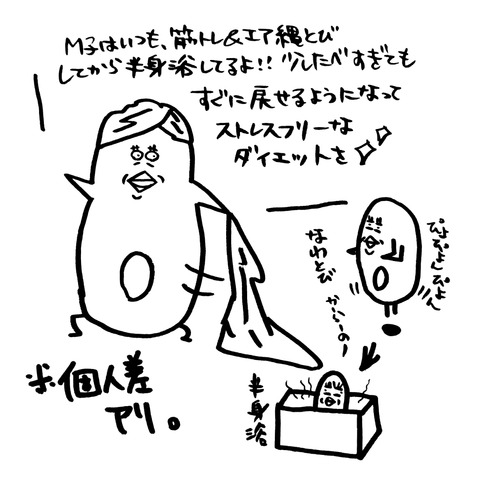 M子はいつも、筋トレ&エア縄とび
してから半身浴してるよ!! 少したべすぎても
すぐに戻せるようになって
ストレスフリーな
ダイエットを
ぴょんぴょんぴょん
なわとび
かーいーの!
半身浴
※個人差
アリ。